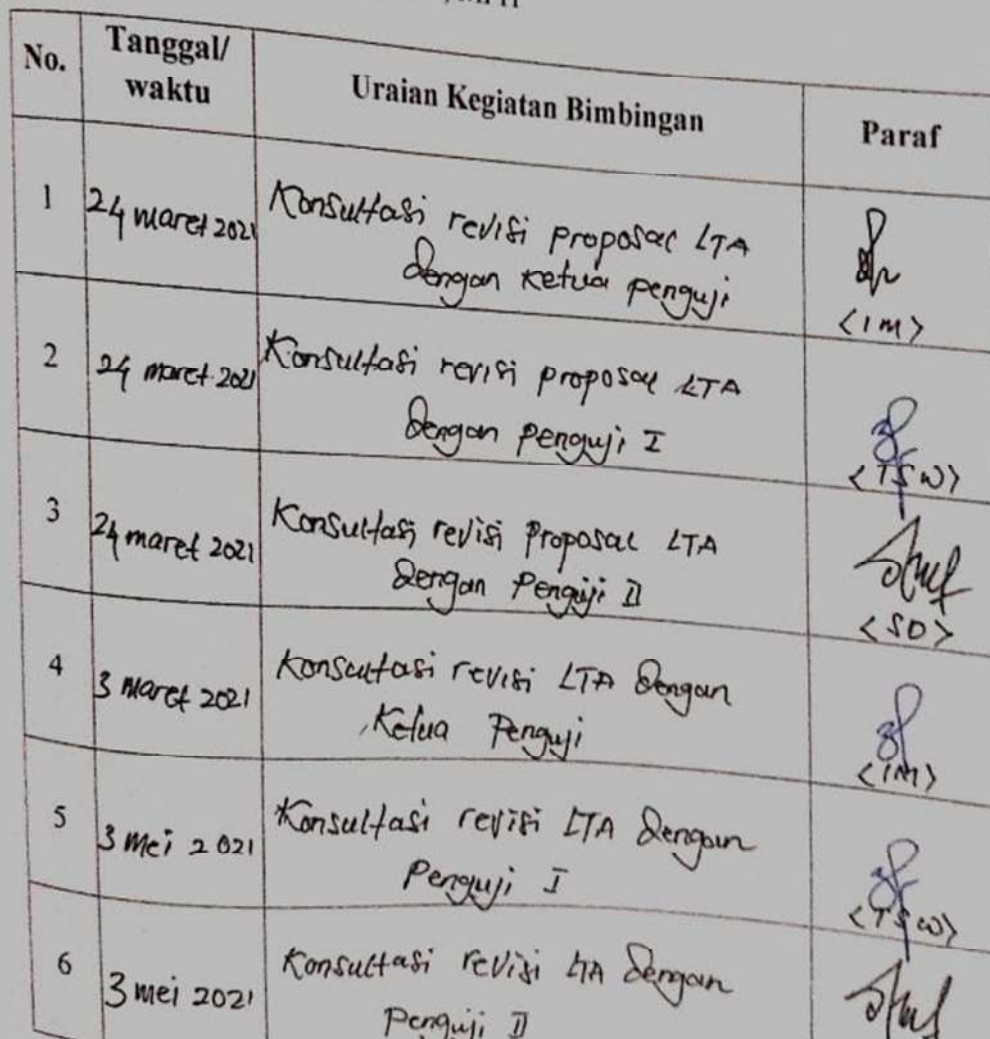 No. Tanggal/ Uraian Kegiatan Bimbingan Paraf
waktu
1 24 maret 2021 Konsultasi revisi proposal LTA
dengan ketua penguji
<IM>
2 24 maret 2021 Konsultasi revisi proposal LTA
Dengan penguji I
<TSW>
3 24 maret 2021 Konsultasi revisi Proposal LTA
Dengan Penguji II
<SD>
4 3 maret 2021 Konsultasi revisi LTA Dengan
Ketua Penguji
<IM>
5 3 Mei 2021 Konsultasi revisi LTA Dengan
Penguji I
<TSW>
6 3 mei 2021 Konsultasi revisi LTA Dengan
Penguji II